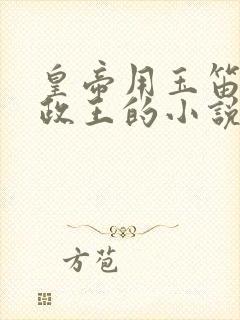 皇帝用玉笛
政王的小說
方苞